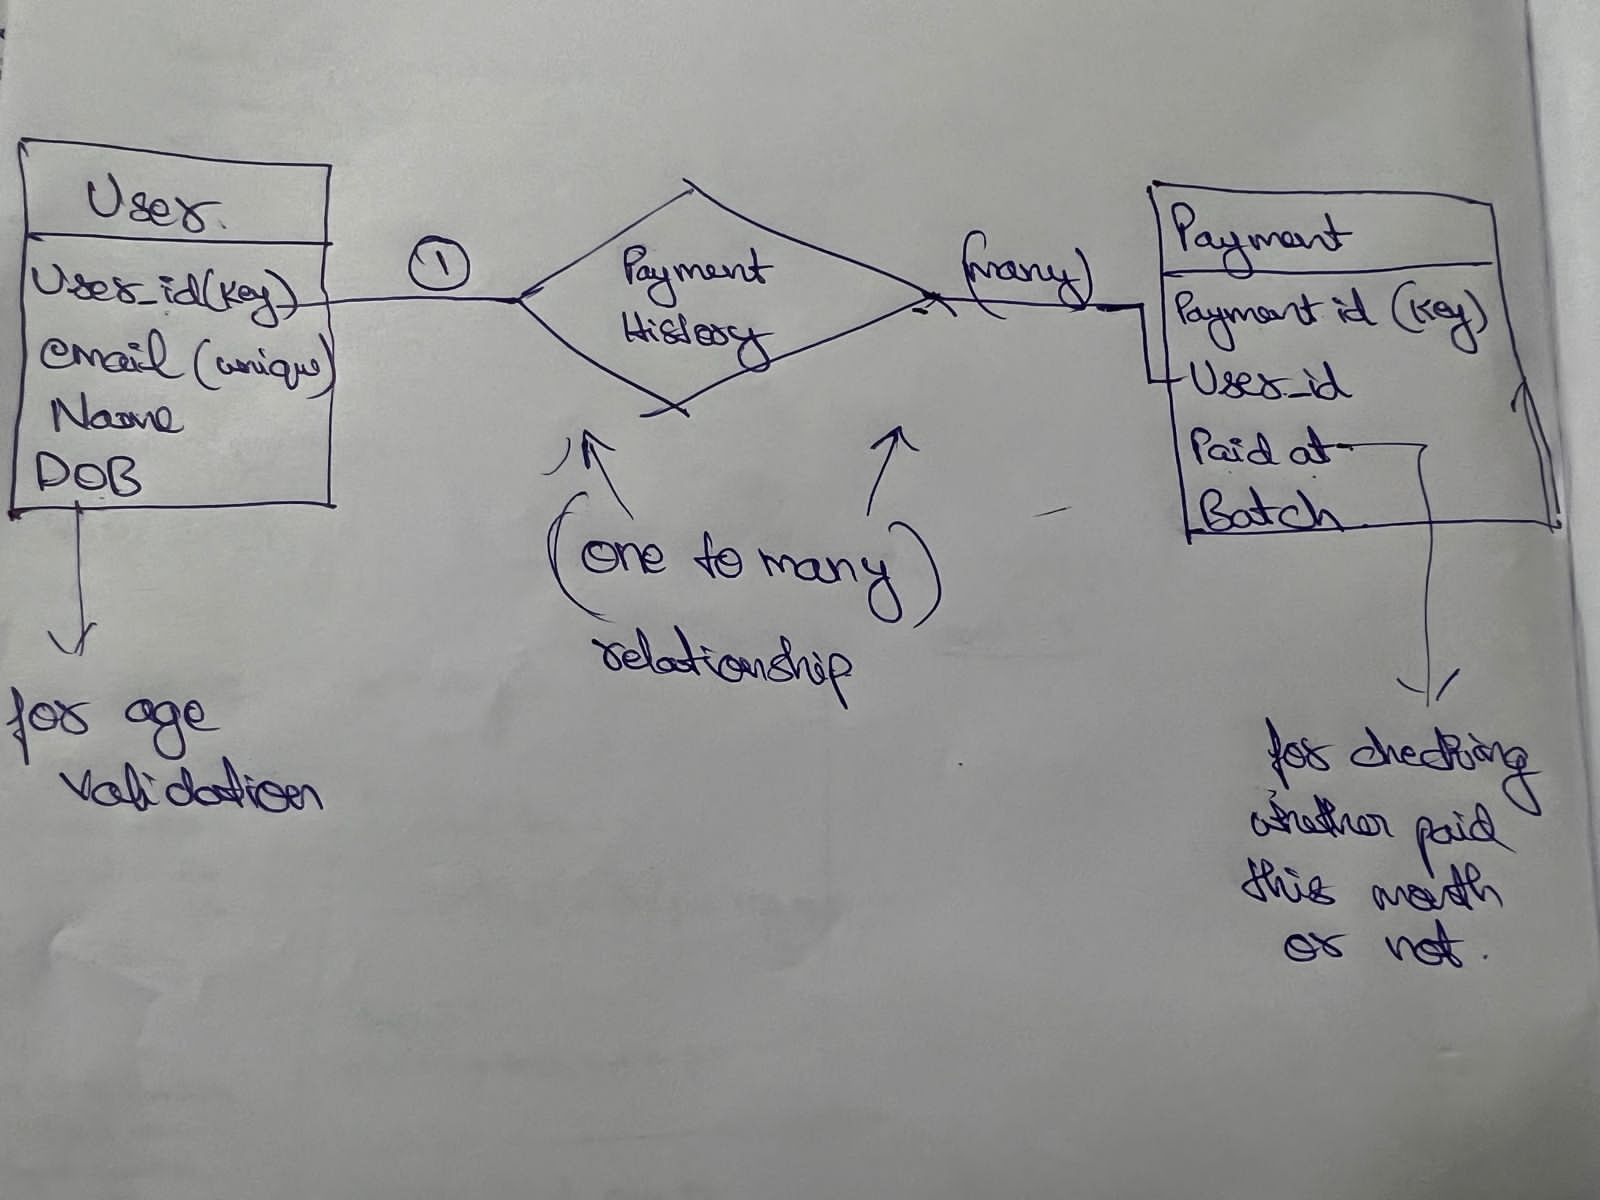 User.
User_id(key)
email (unique)
Name
DOB
for age
validation
1
Payment
History
(many)
(one to many)
relationship
Payment
Payment id (key)
User_id
Paid at
Batch
for checking
whether paid
this month
or not.